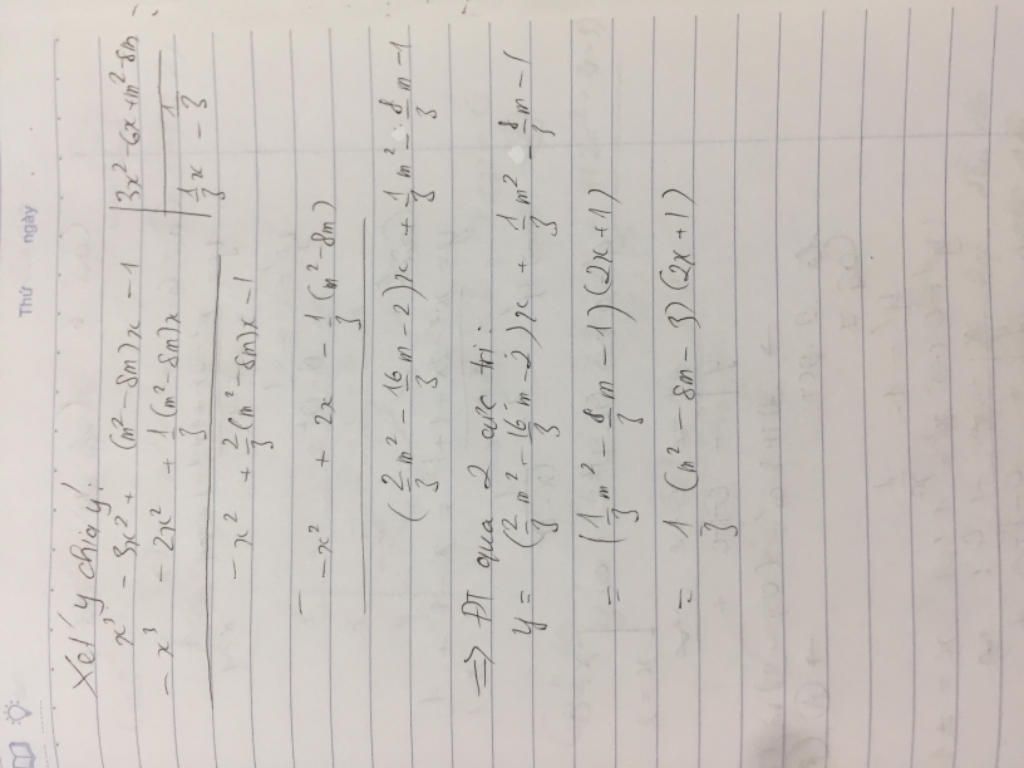 Thứ ngày
Xét y chia y'
x³ - 3x² + (m² - 8m)x - 1 | 3x² - 6x + m² - 8m
- x³ - 2x² + 1/3 (m² - 8m)x | 1/3 x - 1/3
- x² + 2/3 (m² - 8m)x - 1
- - x² + 2x - 1/3 (m² - 8m)
(2/3 m² - 16/3 m - 2)x + 1/3 m² - 8/3 m - 1
=> PT qua 2 cực trị:
y = (2/3 m² - 16/3 m - 2)x + 1/3 m² - 8/3 m - 1
= (1/3 m² - 8/3 m - 1)(2x + 1)
= 1/3 (m² - 8m - 3)(2x + 1)